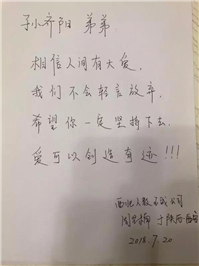 子小齐阳 弟弟
相信人间有大爱,
我们不会轻言放弃,
希望你一定坚持下去,
爱可以创造奇迹!!!
西北人数在线公司
于陕西西安
2018.7.20